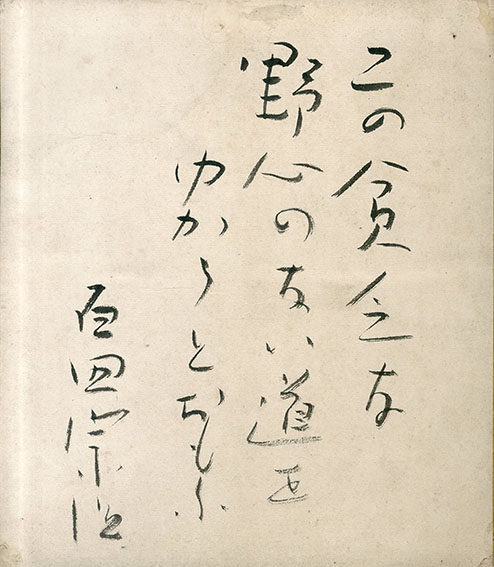 この貧乏な
野心のない道を
ゆかうとおもふ
百田宗治